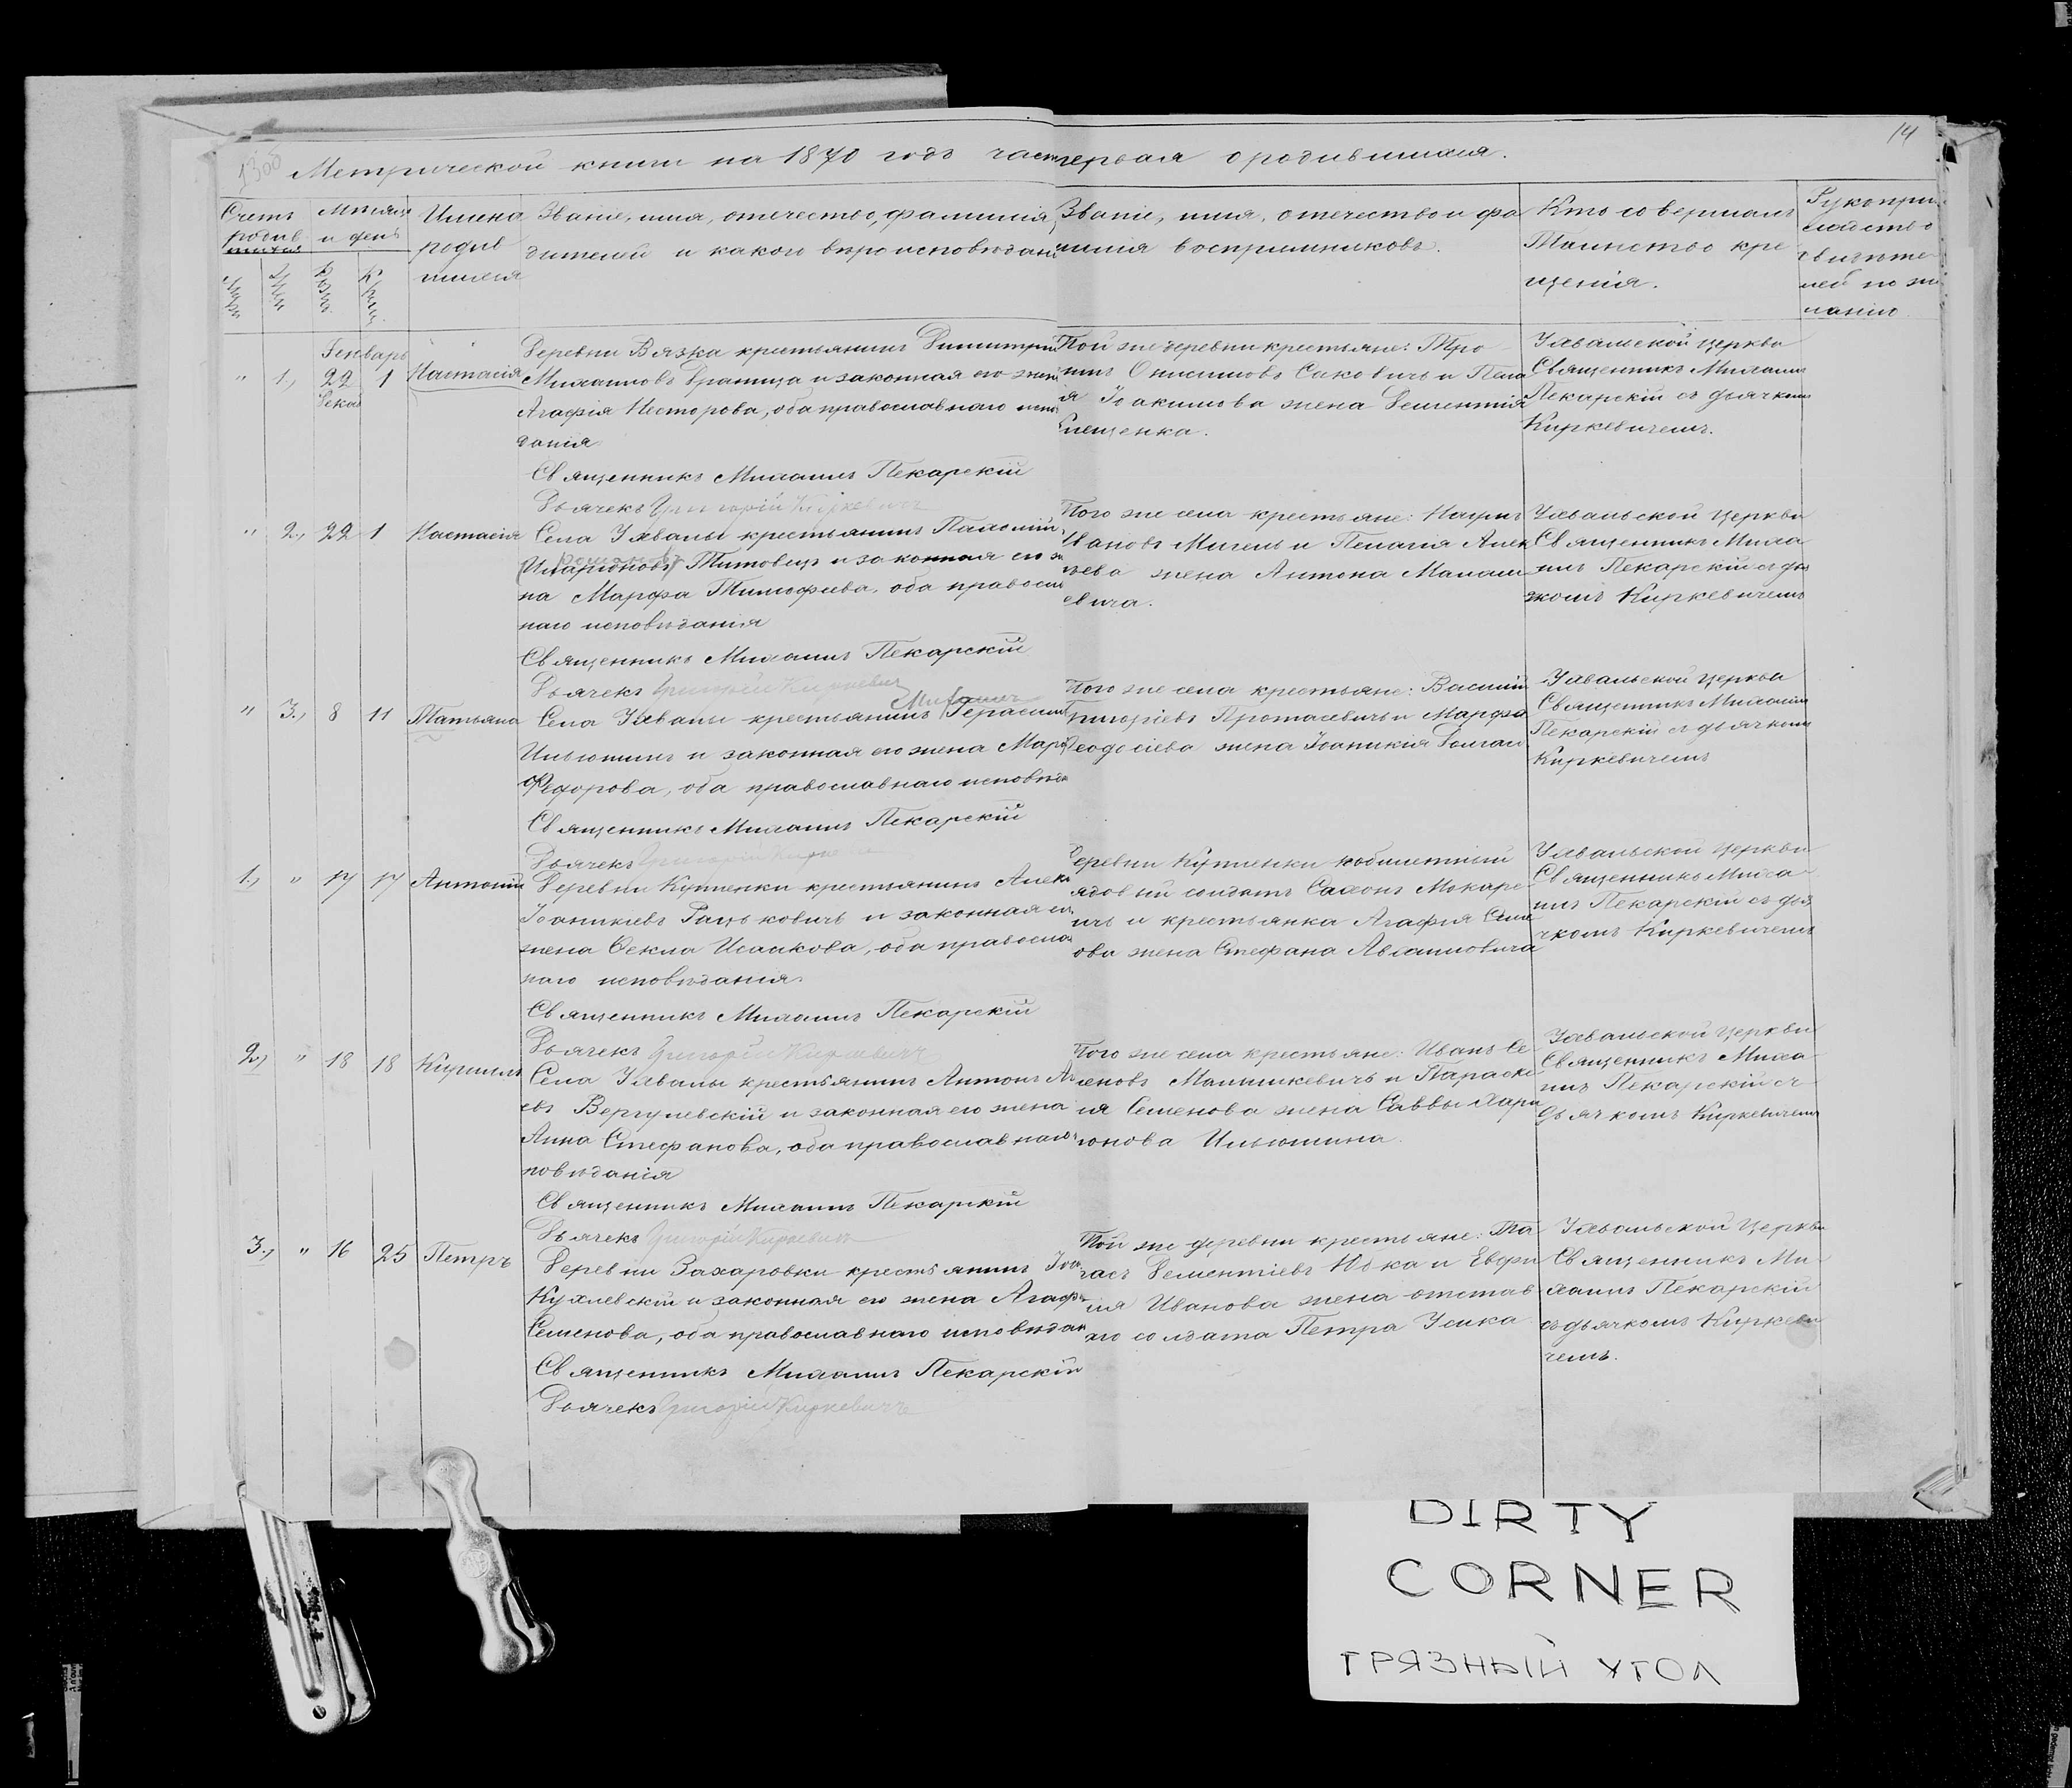 14
1308 Метрической книги на 1870 годъ часть первая о родившихся.
Счетъ родив шихся
Мѣсяцъ и день
Имена родив шихся
Званіе, имя, отечество, фамилія
дителей и какого вѣроисповѣдан
Званіе, имя, отечество и фа
милія воспріемниковъ.
Кто совершалъ
Таинство кре
щенія.
Рукопри
кладство
свидѣте
лей по же
ланію
Генварь
" 1., 22 1 Настасія
Декаб
Деревни Вязка крестьянинъ Димитрій
Михаиловъ Враница и законная его жен
Агафія Несторова, оба православнаго испо
данія
Священникъ Михаилъ Пекарскій
Дьячекъ Григорій Киркевичъ
Той же деревни крестьяне: Тро
имъ Онисимовъ Саковичъ и Пела
я Іоакимова жена Дементія
Клещенка.
Ухвальской церкви
Священникъ Михаилъ
Пекарскій съ дьячкомъ
Киркевичемъ.
" 2., 22 1 Настасія
Села Ухвалы крестьянинъ
(Иларіоновъ) Романовъ Титовецъ и законная его же
на Марфа Тимофеева, оба правосла
наго исповѣданія
Священникъ Михаилъ Пекарскій
Дьячекъ Григорій Киркевичъ
Того же села крестьяне:
Ивановъ Мигель и Пелагія Алек
ѣева жена Антона Малаш
евича.
Ухвальской церкви
Священникъ Миха
илъ Пекарскій съ дья
чкомъ Киркевичемъ
" 3., 8 11 Татьяна
Михаилъ
Села Ухвалы крестьянинъ Герасим
Ильюшинъ и законная его жена Мар
Федорова, оба православнаго исповѣда
Священникъ Михаилъ Пекарскій
Дьячекъ Григорій Киркевичъ
Того же села крестьяне: Василій
Григоріевъ Протасевичъ и Марфа
Феодосіева жена Іоаникія
Ухвальской церкви
Священникъ Михаилъ
Пекарскій съ дьячкомъ
Киркевичемъ
1., " 17 17 Антоній
Деревни Кутенки крестьянинъ Алек
Іоаникіевъ Рацковичъ и законная ег
жена Ѳекла Исаакова, оба правосла
наго исповѣданія.
Священникъ Михаилъ Пекарскій
Дьячекъ Григорій Киркевичъ
еревни Кутенки
ядовый солдатъ Сахонъ Макаре
ичъ и крестьянка Агафія Семе
ова жена Стефана Авхимовича
Ухвальской церкви
Священникъ Миха
илъ Пекарскій съ дья
чкомъ Киркевичемъ
2., " 18 18 Кириллъ
Села Ухвалы крестьянинъ Антонъ
евъ Вергулевскій и законная его жена
Анна Стефанова, оба православнаго
повѣданія
Священникъ Михаилъ Пекарскій
Дьячекъ Григорій Киркевичъ
Того же села крестьяне: Иванъ Се
меновъ Машикевичъ и Параске
ія Семенова жена Саввы Хари
тонова Ильюшина.
Ухвальской церкви
Священникъ Миха
илъ Пекарскій съ
дьячкомъ Киркевичемъ
3., " 16 25 Петръ
Деревни Захаровки крестьянинъ Іоа
Кухлевскій и законная его жена Агафі
Семенова, оба православнаго исповѣдан
Священникъ Михаилъ Пекарскій
Дьячекъ Григорій Киркевичъ
Той же деревни крестьяне: Та
расъ Дементіевъ Юбка и Евфи
мія Иванова жена отстав
аго солдата Петра Усика
Ухвальской церкви
Священникъ Ми
хаилъ Пекарскій
съ дьячкомъ Киркеви
чемъ.
DIRTY
CORNER
ГРЯЗНЫЙ УГОЛ